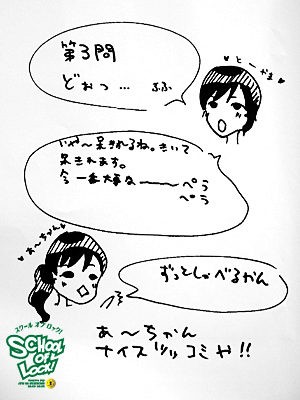 第3問
どおっ… ふふ
♥とーやま♥
いや〜呆きれるね。きいて
呆きれます。
今一番大事な―――ぺら
ぺら
♥あ〜ちゃん♥
ずっとしゃべるかん
あ〜ちゃん
ナイスツッコミや!!
スクール オブ ロック!
SCHOOL
OF
LOCK!